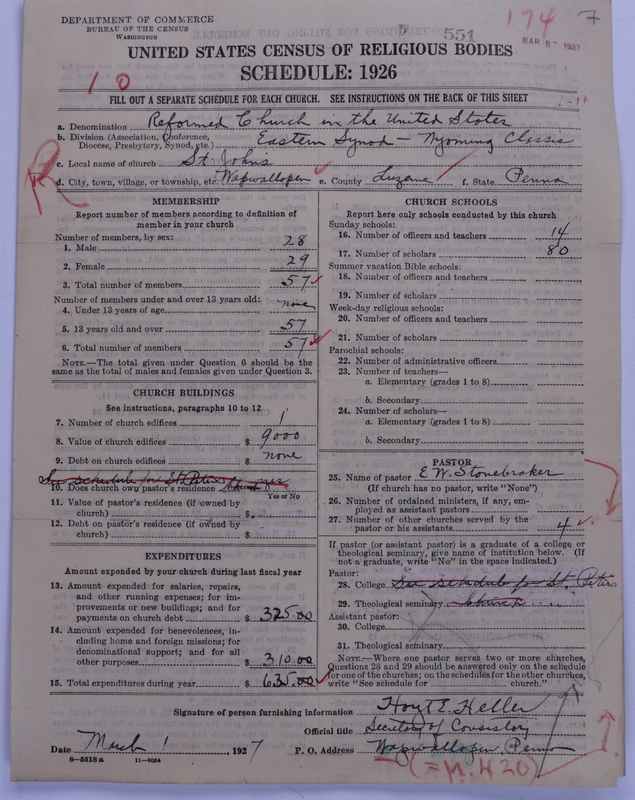 DEPARTMENT OF COMMERCE
BUREAU OF THE CENSUS
WASHINGTON
551
174
7
MAR 8- 1927
UNITED STATES CENSUS OF RELIGIOUS BODIES
SCHEDULE: 1926
10
FILL OUT A SEPARATE SCHEDULE FOR EACH CHURCH. SEE INSTRUCTIONS ON THE BACK OF THIS SHEET
a. Denomination Reformed Church in the United States
b. Division (Association, Conference, Diocese, Presbytery, Synod, etc.) Eastern Synod - Wyoming Classis
c. Local name of church St. Johns
d. City, town, village, or township, etc. Wapwallopen e. County Luzerne f. State Penna
MEMBERSHIP
Report number of members according to definition of
member in your church
Number of members, by sex:
1. Male 28
2. Female 29
3. Total number of members 57
Number of members under and over 13 years old:
4. Under 13 years of age none
5. 13 years old and over 57
6. Total number of members 57
NOTE.—The total given under Question 6 should be the
same as the total of males and females given under Question 3.
CHURCH BUILDINGS
See instructions, paragraphs 10 to 12
7. Number of church edifices 1
8. Value of church edifices $ 9000
9. Debt on church edifices $ none
See schedule for St. Peters
10. Does church own pastor's residence
Yes or No
11. Value of pastor's residence (if owned by
church) $
12. Debt on pastor's residence (if owned by
church) $
EXPENDITURES
Amount expended by your church during last fiscal year
13. Amount expended for salaries, repairs,
and other running expenses; for im-
provements or new buildings; and for
payments on church debt $ 325.00
14. Amount expended for benevolences, in-
cluding home and foreign missions; for
denominational support; and for all
other purposes 310.00
15. Total expenditures during year $ 635.00
CHURCH SCHOOLS
Report here only schools conducted by this church
Sunday schools:
16. Number of officers and teachers 14
17. Number of scholars 80
Summer vacation Bible schools:
18. Number of officers and teachers
19. Number of scholars
Week-day religious schools:
20. Number of officers and teachers
21. Number of scholars
Parochial schools:
22. Number of administrative officers
23. Number of teachers—
a. Elementary (grades 1 to 8)
b. Secondary
24. Number of scholars—
a. Elementary (grades 1 to 8)
b. Secondary
PASTOR
25. Name of pastor E. W. Stonebraker
(If church has no pastor, write "None")
26. Number of ordained ministers, if any, em-
ployed as assistant pastors
27. Number of other churches served by the
pastor or his assistants 4
If pastor (or assistant pastor) is a graduate of a college or
theological seminary, give name of institution below. (If
not a graduate, write "No" in the space indicated.)
Pastor:
28. College See schedule for St. Peters
29. Theological seminary Church
Assistant pastor:
30. College
31. Theological seminary
NOTE.—Where one pastor serves two or more churches,
Questions 28 and 29 should be answered only on the schedule
for one of the churches; on the schedules for the other churches,
write "See schedule for church."
Signature of person furnishing information Hoyt E. Heller
Official title Secretary of Consistory
Date March 1, 1927 P. O. Address Wapwallopen, Penna
8—5518 a 11—9064